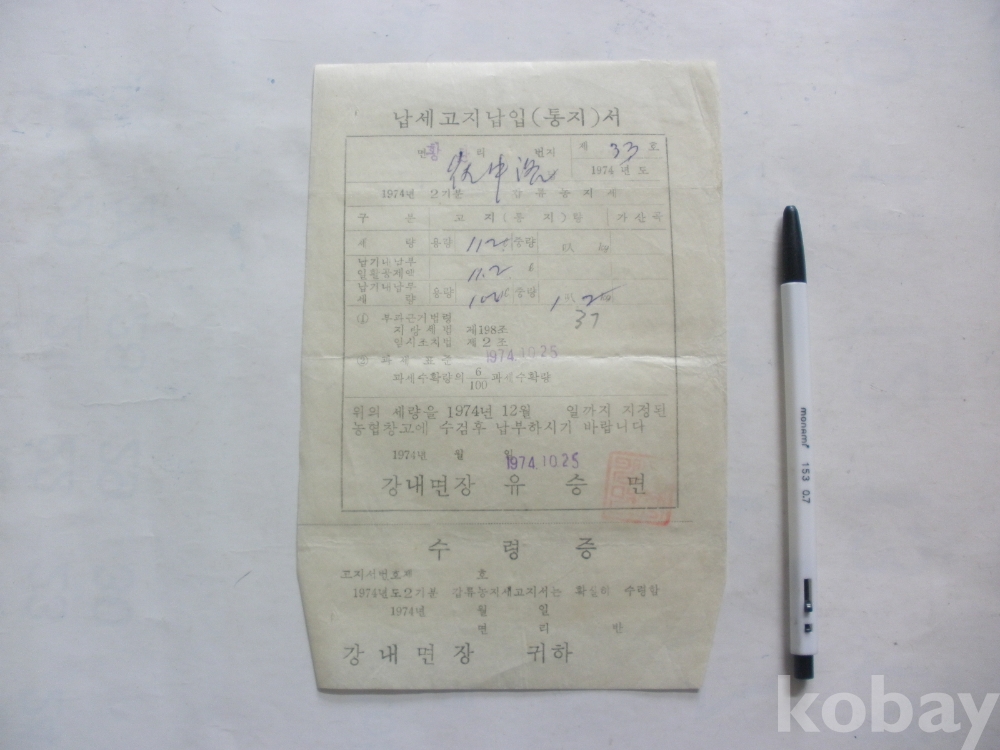 납세고지납입(통지)서
면 황 리 번지 제 33 호
1974 년 도
1974년 2기분 갑류농지세
구 분 고 지 ( 통 지 ) 량 가산죽
세 량 용량 112 중량
납기내납부
11.2
납기내납부
세 량 용량 중량
37
(1) 부과근거법령
지방세법 제198조
임시조치법 제2조
(2) 과세표준 1974.10.25
과세수확량의 6/100 과세수확량
위의 세량을 1974년 12월 일까지 지정된
농협창고에 수검후 납부하시기 바랍니다
1974년 월 일 1974.10.25
강내면장 유 숭 면
수 령 증
고지서번호제 호
1974년도2기분 갑류농지세고지서는 확실히 수령함
1974년 월 일
면 리 반
강 내 면 장 귀하
monami 153 0.7
kobay